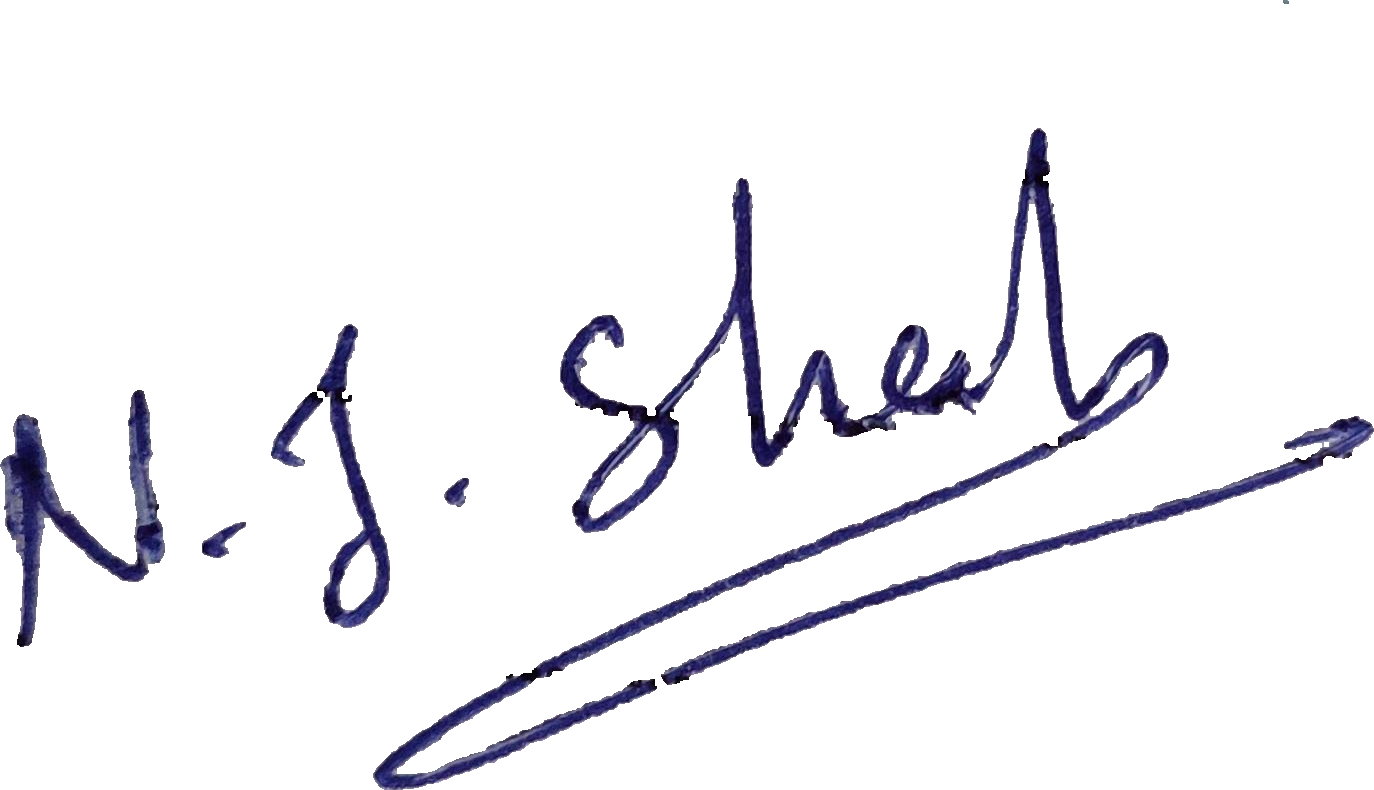 N. J. Shah